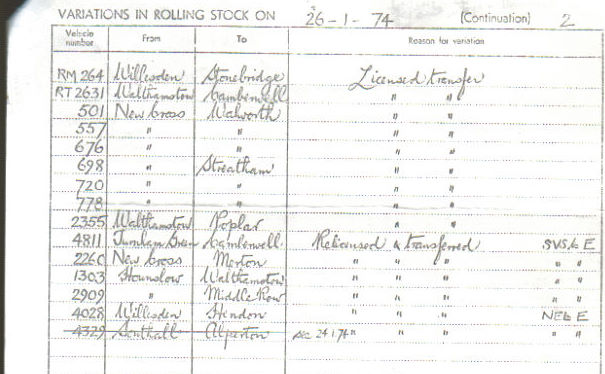 VARIATIONS IN ROLLING STOCK ON 26-1-74 (Continuation) 2
Vehicle number From To Reason for variation
RM 264 Willesden Stonebridge Licensed transfer
RT 2631 Walthamstow Camberwell " "
501 New Cross Walworth " "
557 " " " "
676 " " " "
698 " Streatham " "
720 " " " "
778 " " " "
2355 Walthamstow Poplar " "
4811 Turnham Green Camberwell Relicensed & transferred SVS. & E
2260 New Cross Merton " " " " "
1303 Hounslow Walthamstow " " " " "
2909 " Middle Row " " " " "
4028 Willesden Hendon " " " NEb E
4329 Southall Alperton See 24.1.74 " " " " "